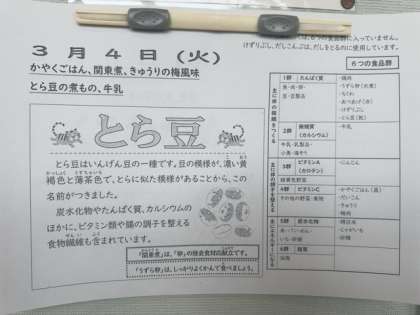 ６つの食品群に入っていません。
けずりぶし、だしこんぶは、だしをとるのに使用しています。
３月４日（火）
かやくごはん、関東煮、きゅうりの梅風味
とら豆の煮もの、牛乳
とら豆
とら豆はいんげん豆の一種です。豆の模様が、濃い黄
褐色と薄茶色で、とらに似た模様があることから、この
名前がつきました。
炭水化物やたんぱく質、カルシウムの
ほかに、ビタミン類や腸の調子を整える
食物繊維も含まれています。
「関東煮」は、「卵」の除去食対応献立です。
「うずら卵」は、しっかりよくかんで食べましょう。
６つの食品群
１群 たんぱく質
魚・肉・卵・
豆・豆製品
・鶏肉
・うずら卵(水煮)
・ちくわ
・あつあげ(冷)
・けずりぶし
・とら豆(乾)
２群 無機質
(カルシウム)
牛乳・乳製品・
小魚・海そう
・牛乳
３群 ビタミンA
(カロテン)
緑黄色野菜
・にんじん
４群 ビタミンC
その他の野菜・果物
・だいこん
・きゅうり
５群 炭水化物
・じゃがいも
・砂糖
６群 脂質
油脂